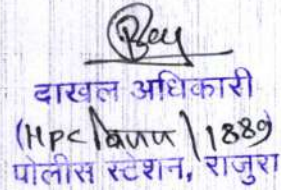 दाखल अधिकारी
(HPC 1889)
पोलीस स्टेशन, राजुरा